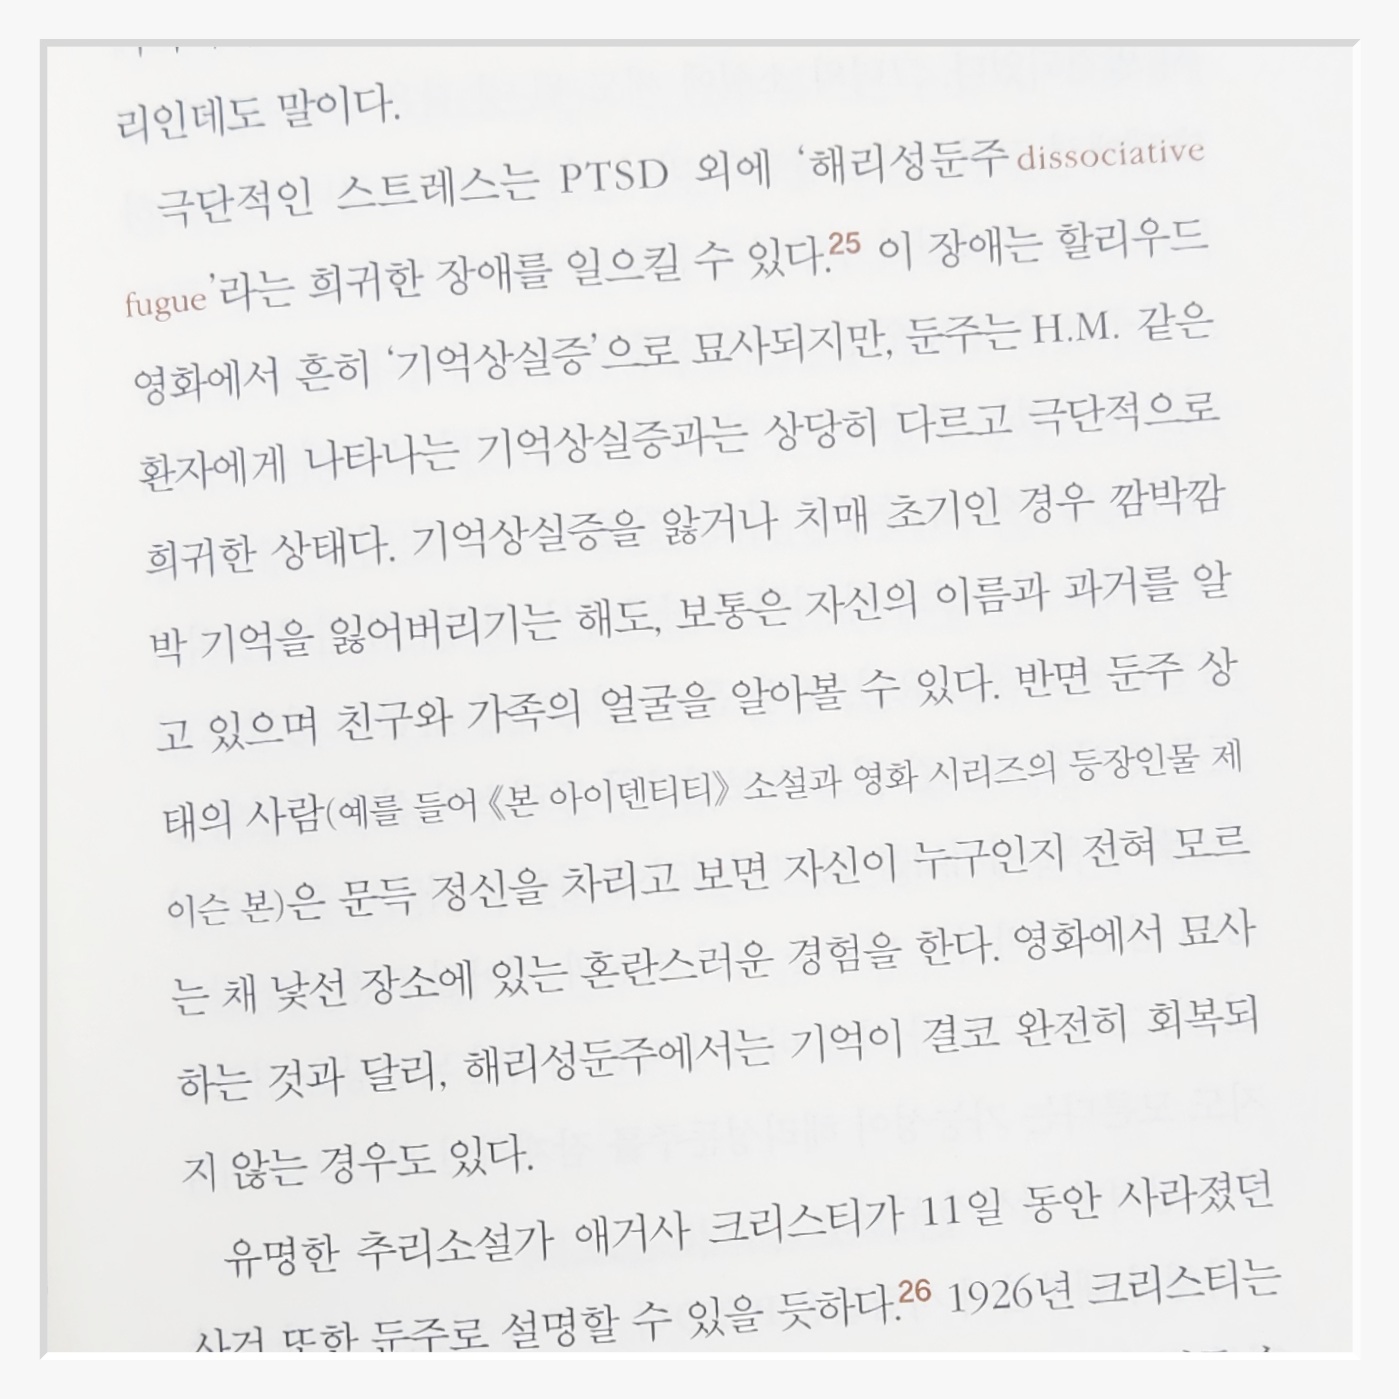 리인데도 말이다.
극단적인 스트레스는 PTSD 외에 ‘해리성둔주dissociative
fugue’라는 희귀한 장애를 일으킬 수 있다.25 이 장애는 할리우드
영화에서 흔히 ‘기억상실증’으로 묘사되지만, 둔주는 H.M. 같은
환자에게 나타나는 기억상실증과는 상당히 다르고 극단적으로
희귀한 상태다. 기억상실증을 앓거나 치매 초기인 경우 깜박깜
박 기억을 잃어버리기는 해도, 보통은 자신의 이름과 과거를 알
고 있으며 친구와 가족의 얼굴을 알아볼 수 있다. 반면 둔주 상
태의 사람(예를 들어 《본 아이덴티티》 소설과 영화 시리즈의 등장인물 제
이슨 본)은 문득 정신을 차리고 보면 자신이 누구인지 전혀 모르
는 채 낯선 장소에 있는 혼란스러운 경험을 한다. 영화에서 묘사
하는 것과 달리, 해리성둔주에서는 기억이 결코 완전히 회복되
지 않는 경우도 있다.
유명한 추리소설가 애거사 크리스티가 11일 동안 사라졌던
사건 또한 둔주로 설명할 수 있을 듯하다.26 1926년 크리스티는